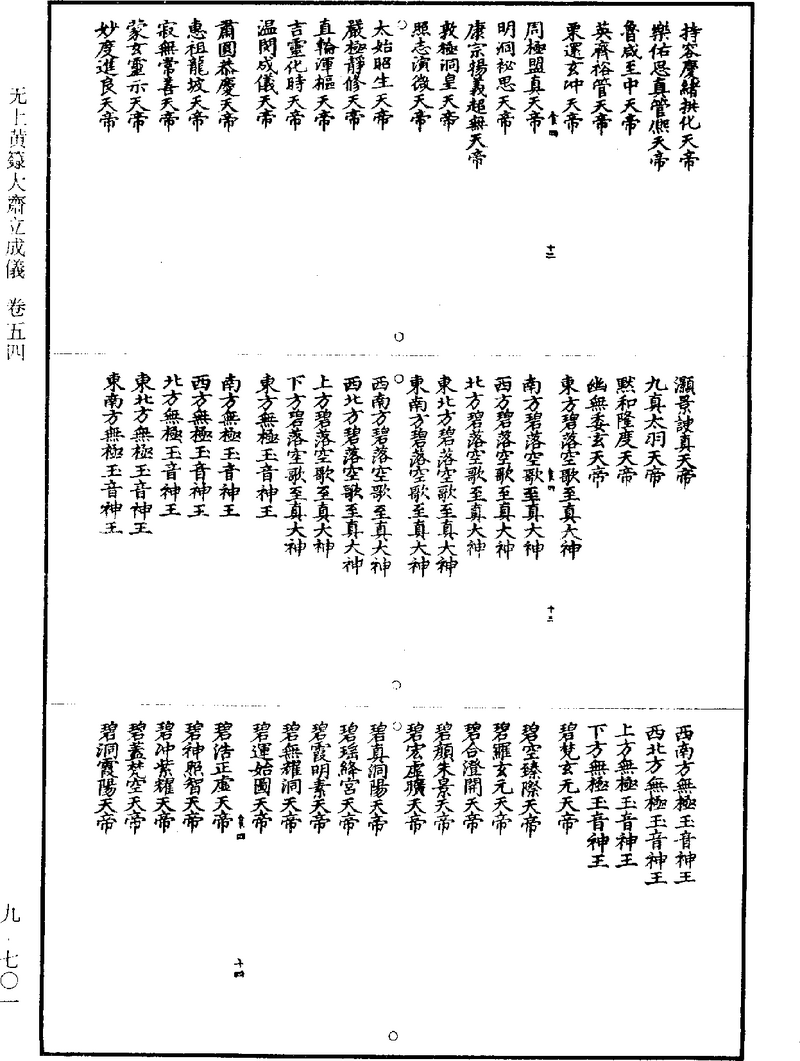 持容慶緒拱化天帝
樂佑思真管熙天帝
魯咸至中天帝
英齊裕管天帝
栗運玄冲天帝
食四 十二
周極盟真天帝
明洞祕思天帝
康宗揚義超無天帝
敦極洞皇天帝
照志演微天帝
太始昭生天帝
嚴極靜修天帝
直輪渾樞天帝
吉靈化時天帝
温閃成儀天帝
肅圓恭慶天帝
惠祖龍坡天帝
寂無常喜天帝
蒙玄靈示天帝
妙度進良天帝
灝景諛真天帝
九真太羽天帝
默和隆度天帝
幽無委玄天帝
東方碧落空歌至真大神
食四 十三
南方碧落空歌至真大神
西方碧落空歌至真大神
北方碧落空歌至真大神
東北方碧落空歌至真大神
東南方碧落空歌至真大神
西南方碧落空歌至真大神
西北方碧落空歌至真大神
上方碧落空歌至真大神
下方碧落空歌至真大神
東方無極玉音神王
南方無極玉音神王
西方無極玉音神王
北方無極玉音神王
東北方無極玉音神王
東南方無極玉音神王
西南方無極玉音神王
西北方無極玉音神王
上方無極玉音神王
下方無極玉音神王
碧梵玄元天帝
碧空臻際天帝
碧羅玄元天帝
碧合澄開天帝
碧顏朱景天帝
碧宏虛曠天帝
碧真洞陽天帝
碧瑤絳宮天帝
碧霞明素天帝
碧無耀洞天帝
碧運始圖天帝
食四 十四
碧浩正虛天帝
碧神照智天帝
碧冲紫耀天帝
碧蓋梵空天帝
碧洞霞陽天帝
无上黃籙大齋立成儀 卷五四
九·七〇一